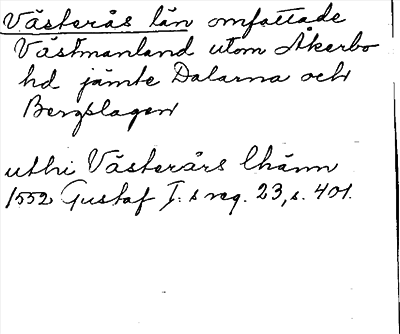 Västerås län omfattade
Västmanland utom Åkerbo
hd jämte Dalarna och
Bergslagen
uthi Västerårs lhänn
1552 Gustaf I:s reg. 23, s. 401.